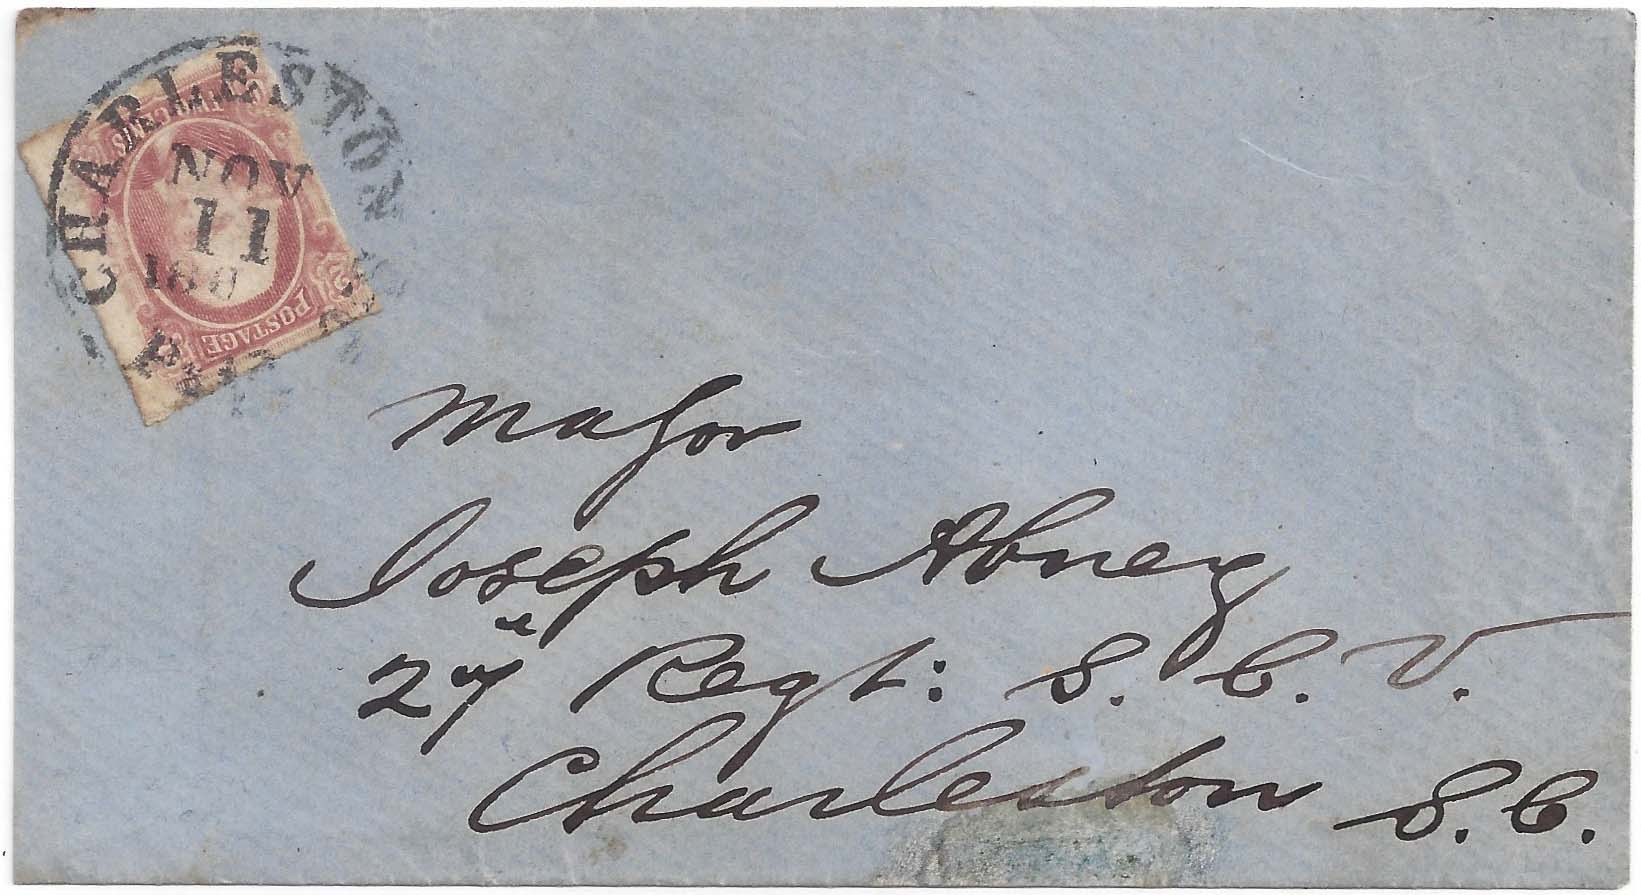 CHARLESTON
NOV
11
POSTAGE
Major
Joseph Abney
27 Regt: S. C. V.
Charleston S. C.